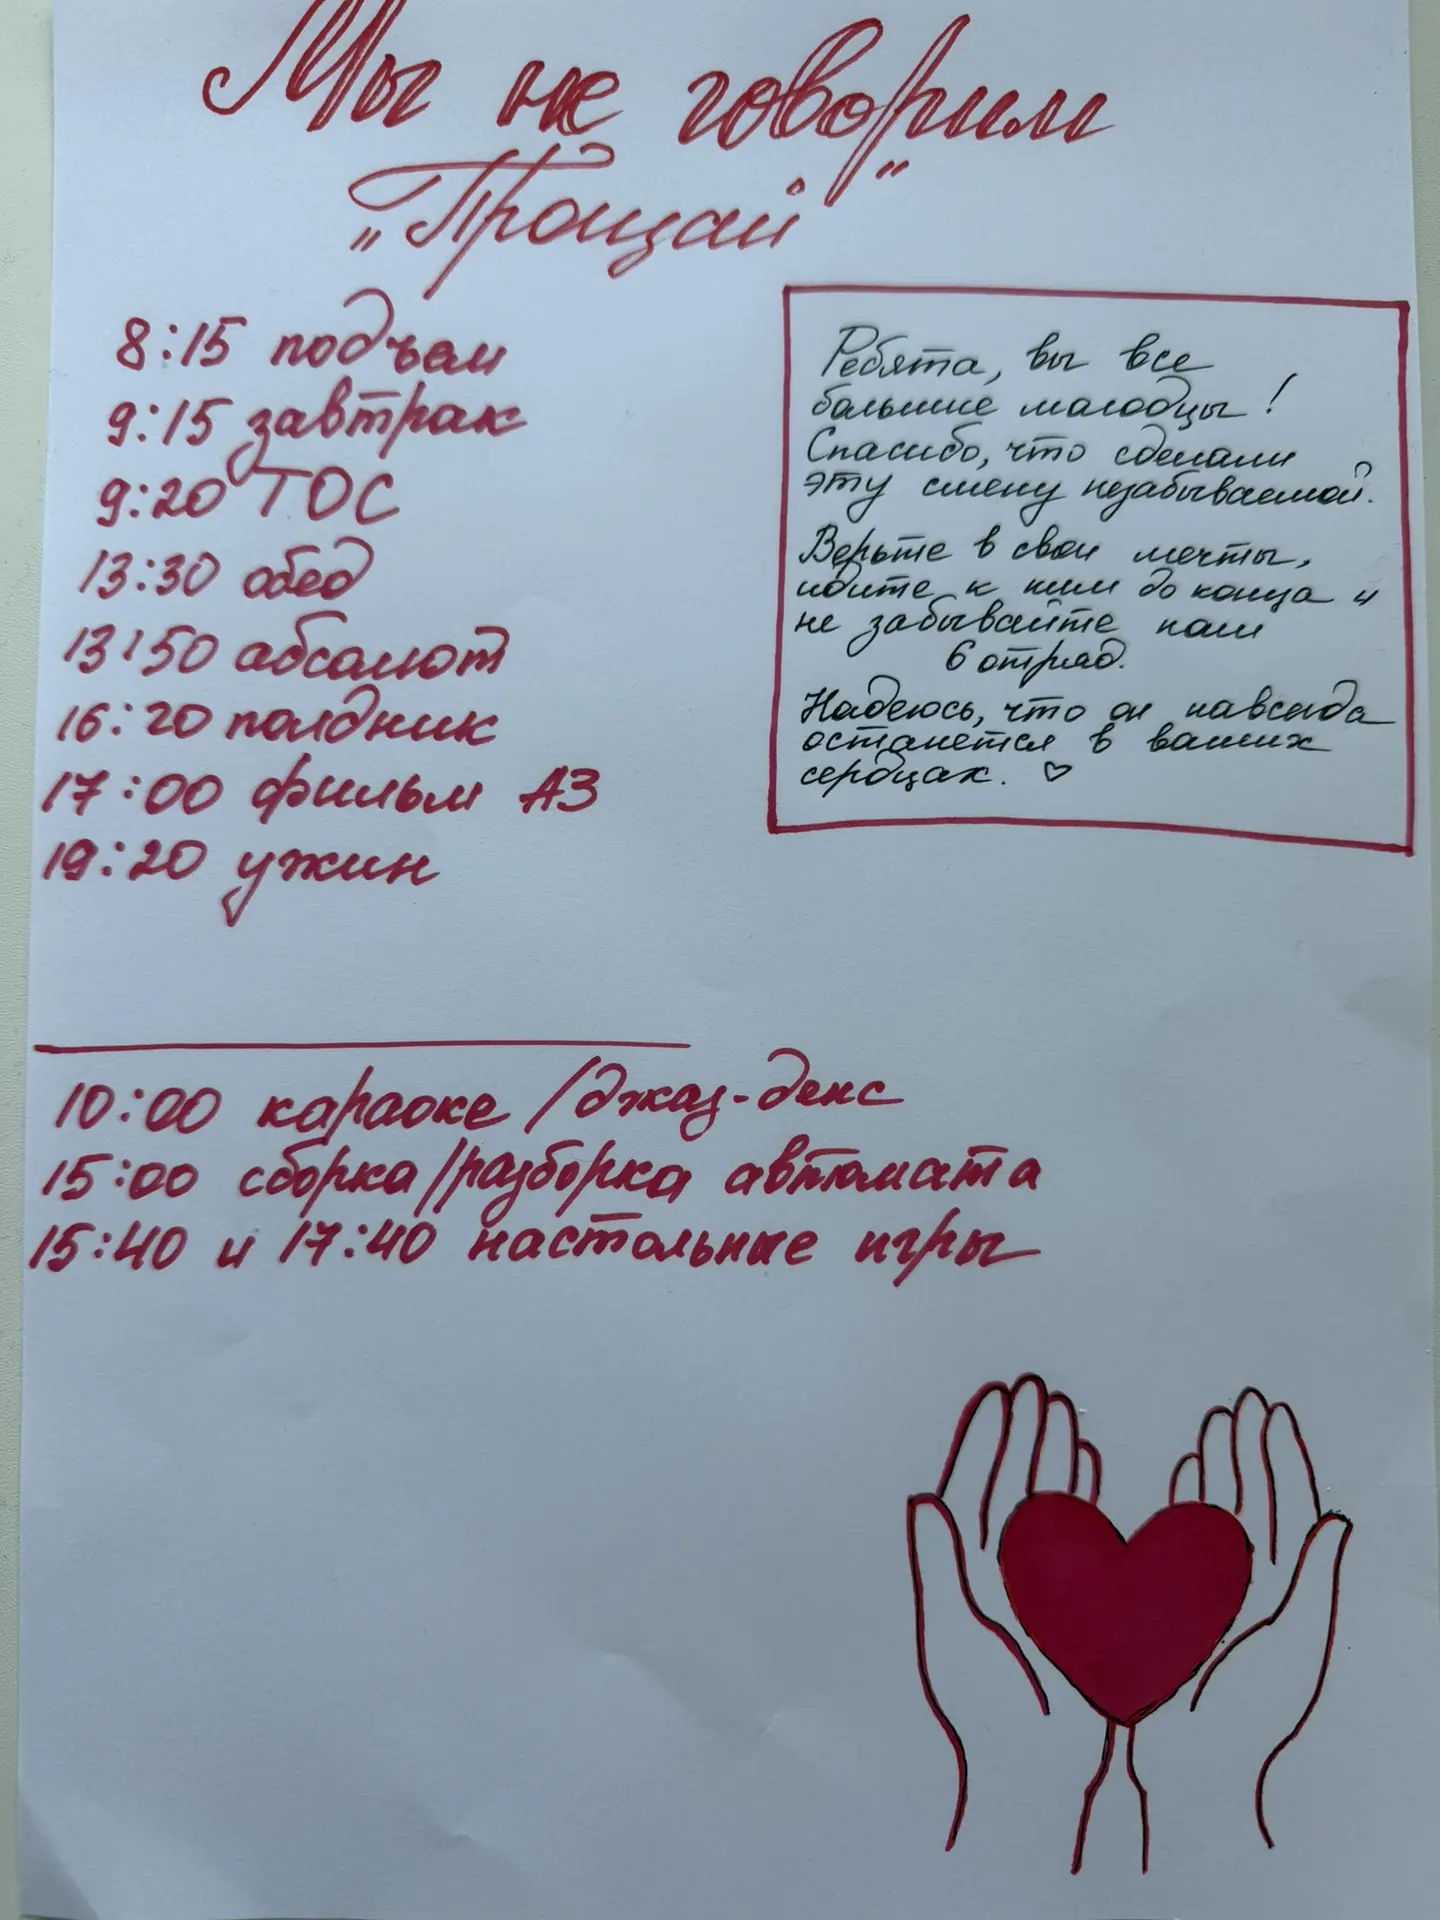 Мы не говорим
„Прощай"
8:15 подъем
9:15 завтрак
9:20 ТОС
13:30 обед
13:50 абсолют
16:20 полдник
17:00 фильм АЗ
19:20 ужин
Ребята, вы все
большие молодцы!
Спасибо, что сделали
эту смену незабываемой.
Верьте в свои мечты,
идите к ним до конца и
не забывайте наш
6 отряд.
Надеюсь, что он навсегда
останется в ваших
сердцах. ♡
10:00 караоке/джаз-денс
15:00 сборка/разборка автомата
15:40 и 17:40 настольные игры